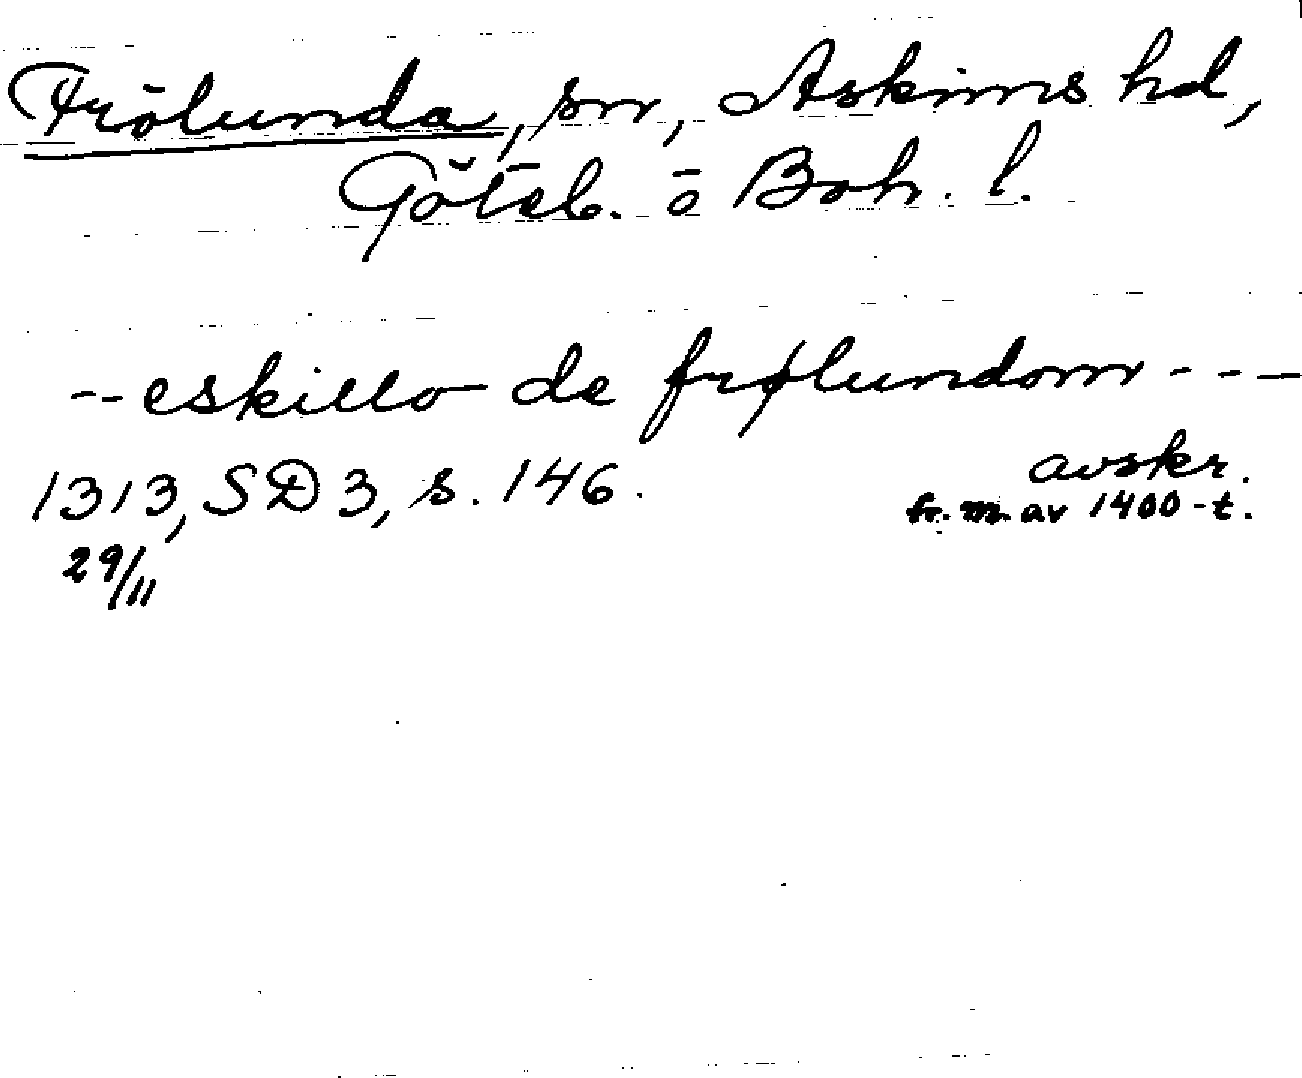 Frölunda, sn, Askims hd,
Göteb. o Boh. l.
-- eskillo de frølundom - - -
1313, SD 3, s. 146. avskr.
fr. m. av 1400-t.
29/11